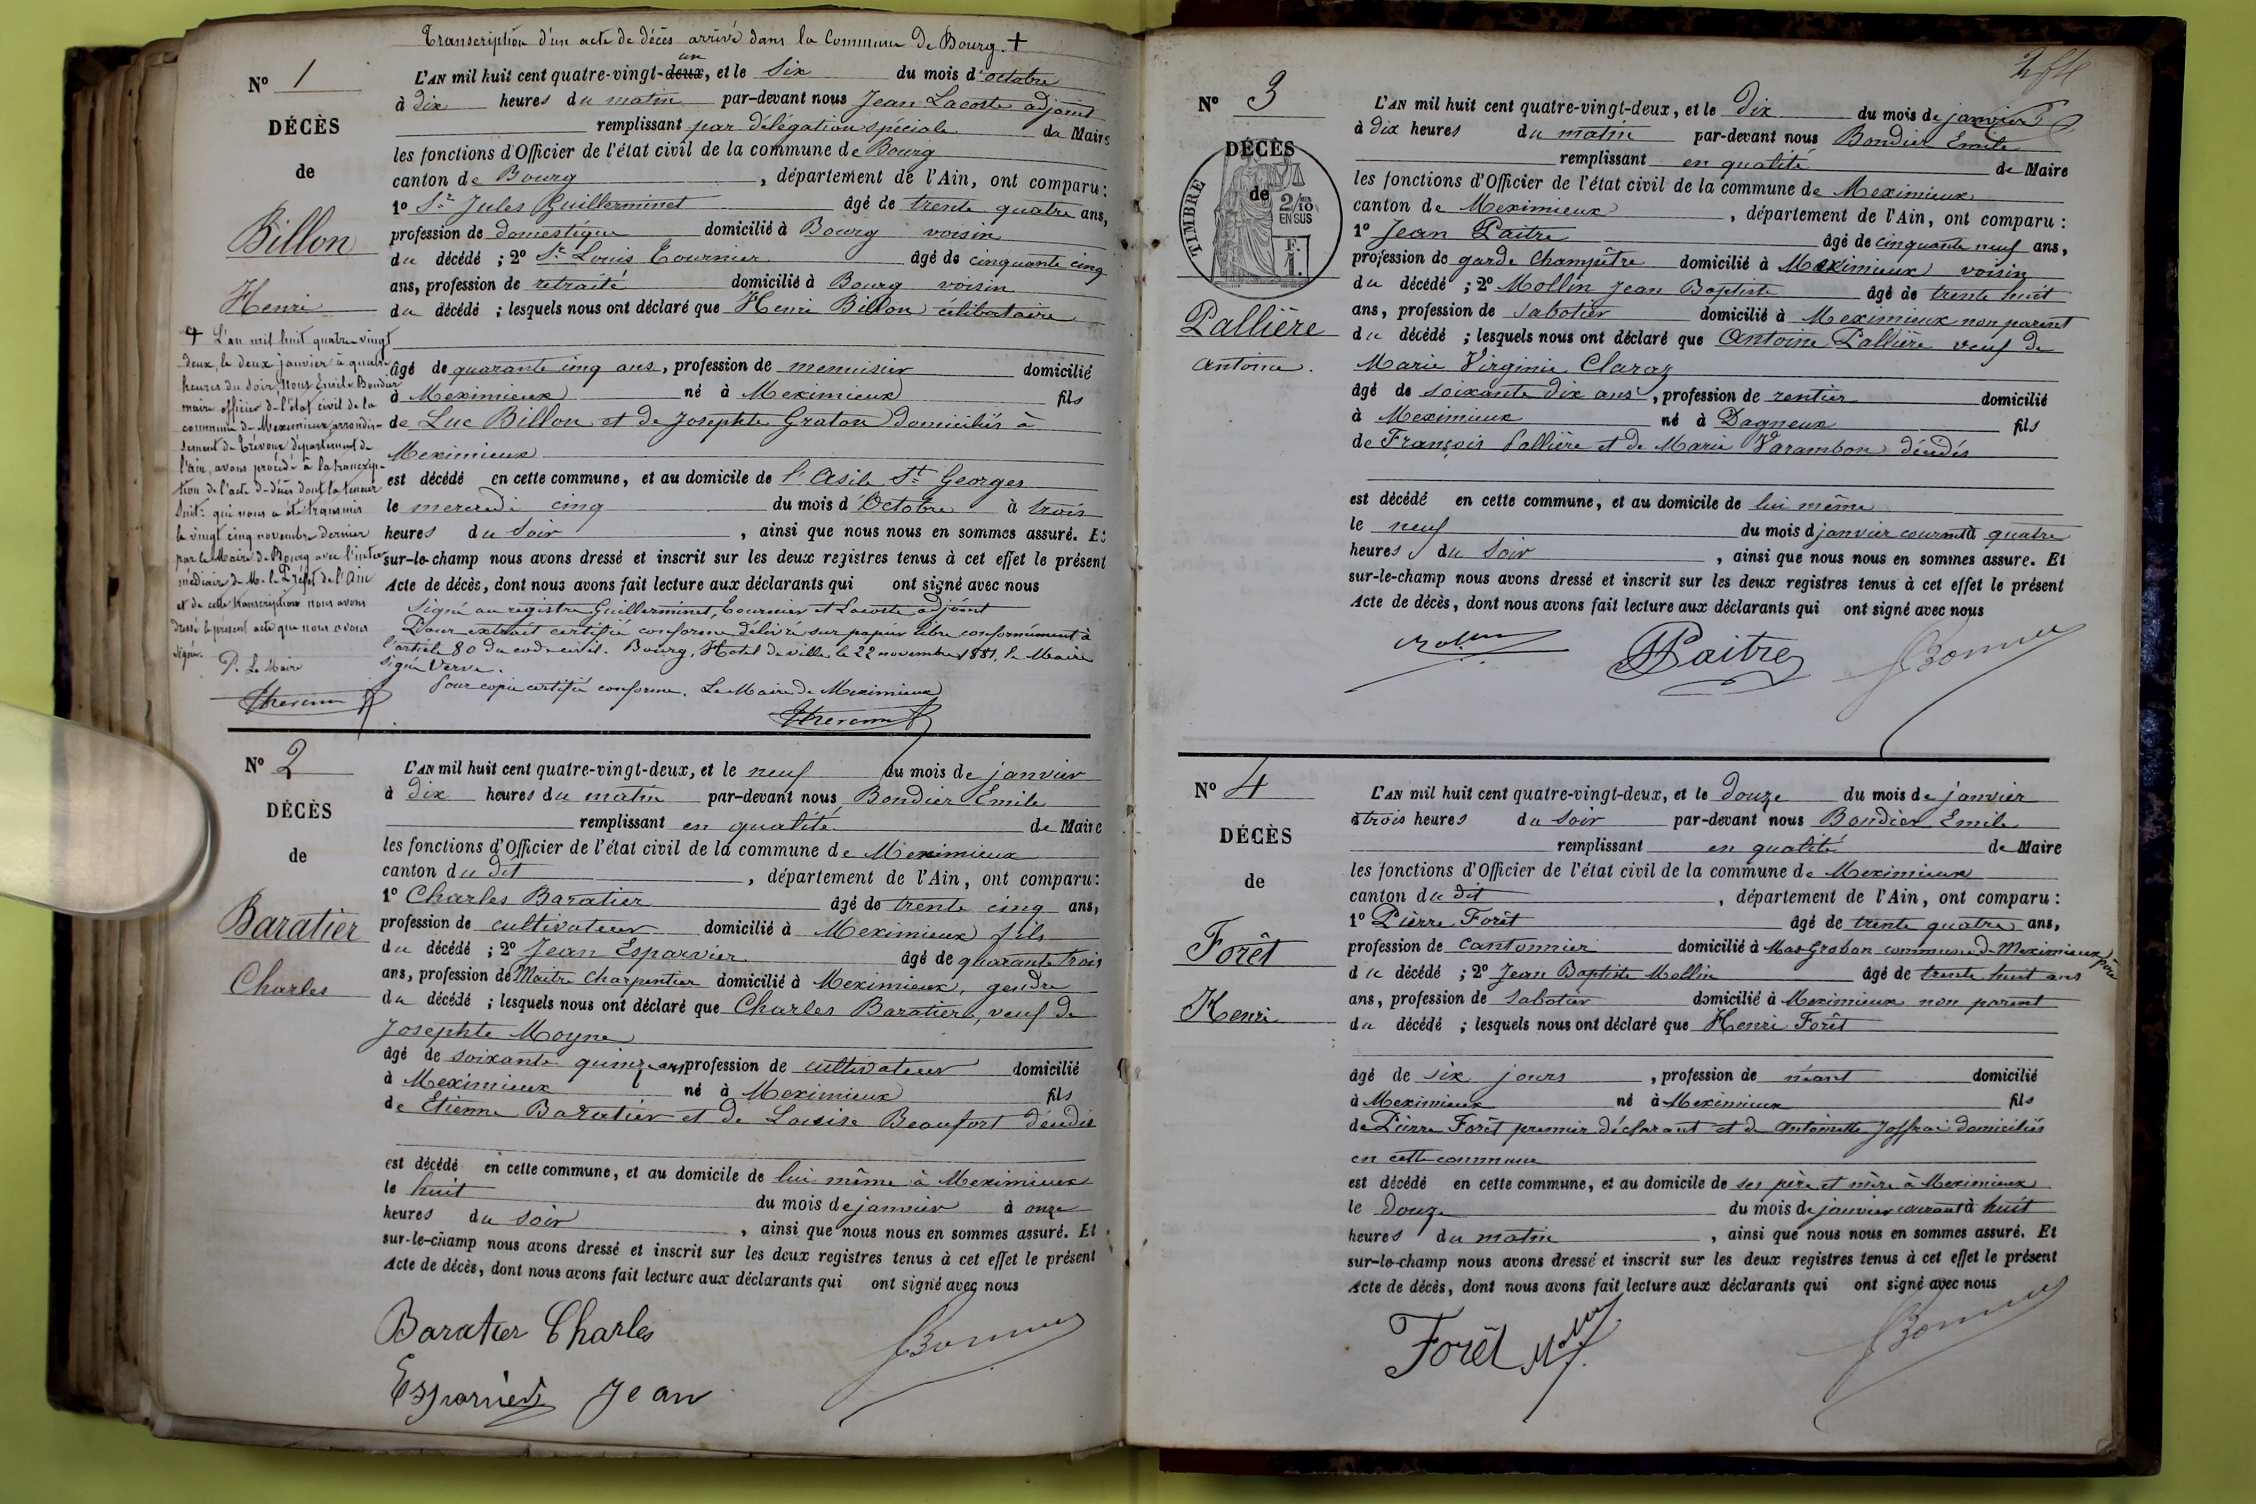 Transcription d'un acte de décès arrivé dans la Commune de Bourg. +
N° 1
DÉCÈS
de
Billon
Henri
L'AN mil huit cent quatre-vingt-deux un, et le six du mois d'octobre
à dix heures du matin par-devant nous Jean Lacoste adjoint
remplissant par délégation spéciale de Maire
les fonctions d'Officier de l'état civil de la commune de Bourg
canton de Bourg, département de l'Ain, ont comparu:
1° Sr Jules Guillerminet âgé de trente quatre ans,
profession de domestique domicilié à Bourg voisin
du décédé ; 2° Sr Louis Tournier âgé de cinquante cinq
ans, profession de retraité domicilié à Bourg voisin
du décédé ; lesquels nous ont déclaré que Henri Billon célibataire
âgé de quarante cinq ans, profession de menuisier domicilié
à Meximieux né à Meximieux fils
de Luc Billon et de Josephte Graton domiciliés à
Meximieux
est décédé en cette commune, et au domicile de l'Asile St Georges
le mercredi cinq du mois d'Octobre à trois
heures du soir, ainsi que nous nous en sommes assuré. Et
sur-le-champ nous avons dressé et inscrit sur les deux registres tenus à cet effet le présent
Acte de décès, dont nous avons fait lecture aux déclarants qui ont signé avec nous
Signé au registre Guillerminet, Tournier et Lacoste adjoint
Pour extrait certifié conforme délivré sur papier libre conformément à
l'article 80 du code civil. Bourg, Hotel de ville le 22 novembre 1881, le Maire
signé Verne.
Pour copie certifiée conforme. Le Maire de Meximieux
+ L'an mil huit quatre-vingt
deux, le deux janvier à quatre
heures du soir, Nous Emile Bondier
maire officier de l'état civil de la
commune de Meximieux, arrondis-
sement de Trévoux département de
l'ain, avons procédé à la transcrip-
tion de l'acte de décès dont la teneur
suit: qui nous a été transmis
le vingt cinq novembre dernier
par le Maire de Bourg avec l'inter-
médiaire de M. le Préfet de l'Ain
et de cette transcription nous avons
dressé le présent acte que nous avons
signé.
P. Le Maire
N° 2
DÉCÈS
de
Baratier
Charles
L'AN mil huit cent quatre-vingt-deux, et le neuf du mois de janvier
à dix heures du matin par-devant nous Bondier Emile
remplissant en qualité de Maire
les fonctions d'Officier de l'état civil de la commune de Meximieux
canton du dit, département de l'Ain, ont comparu:
1° Charles Baratier âgé de trente cinq ans,
profession de cultivateur domicilié à Meximieux fils
du décédé ; 2° Jean Esparvier âgé de quarante trois
ans, profession de Maitre Charpentier domicilié à Meximieux, gendre
du décédé ; lesquels nous ont déclaré que Charles Baratier, veuf de
Josephte Moyne
âgé de soixante quinze ans profession de cultivateur domicilié
à Meximieux né à Meximieux fils
de Etienne Baratier et de Louise Beaufort décédés
est décédé en cette commune, et au domicile de lui même à Meximieux
le huit du mois de janvier à onze
heures du soir, ainsi que nous nous en sommes assuré. Et
sur-le-champ nous avons dressé et inscrit sur les deux registres tenus à cet effet le présent
Acte de décès, dont nous avons fait lecture aux déclarants qui ont signé avec nous
Baratier Charles
Esparvier Jean
N° 3
DÉCÈS
de
TIMBRE
2/10
EN SUS
F.
1.
Pallière
Antoine.
L'AN mil huit cent quatre-vingt-deux, et le dix du mois de janvier
à dix heures du matin par-devant nous Bondier Emile
remplissant en qualité de Maire
les fonctions d'Officier de l'état civil de la commune de Meximieux
canton de Meximieux, département de l'Ain, ont comparu :
1° Jean Paitre âgé de cinquante neuf ans,
profession de garde champêtre domicilié à Meximieux voisin
du décédé ; 2° Mollin Jean Baptiste âgé de trente huit
ans, profession de sabotier domicilié à Meximieux non parent
du décédé ; lesquels nous ont déclaré que Antoine Pallière veuf de
Marie Virginie Claraz
âgé de soixante dix ans, profession de rentier domicilié
à Meximieux né à Dagneux fils
de François Pallière et de Marie Varambon décédés
est décédé en cette commune, et au domicile de lui même
le neuf du mois de janvier courant à quatre
heures du soir, ainsi que nous nous en sommes assuré. Et
sur-le-champ nous avons dressé et inscrit sur les deux registres tenus à cet effet le présent
Acte de décès, dont nous avons fait lecture aux déclarants qui ont signé avec nous
Paitre
N° 4
DÉCÈS
de
Forêt
Henri
L'AN mil huit cent quatre-vingt-deux, et le douze du mois de janvier
à trois heures du soir par-devant nous Bondier Emile
remplissant en qualité de Maire
les fonctions d'Officier de l'état civil de la commune de Meximieux
canton du dit, département de l'Ain, ont comparu :
1° Pierre Forêt âgé de trente quatre ans,
profession de cantonnier domicilié à Mas Groban commune de Meximieux père
du décédé ; 2° Jean Baptiste Mollin âgé de trente huit ans
ans, profession de sabotier domicilié à Meximieux non parent
du décédé ; lesquels nous ont déclaré que Henri Forêt
âgé de six jours, profession de néant domicilié
à Meximieux né à Meximieux fils
de Pierre Forêt premier déclarant et de Antoinette Joffrai domiciliés
en cette commune
est décédé en cette commune, et au domicile de ses père et mère à Meximieux
le douze du mois de janvier courant à huit
heures du matin, ainsi que nous nous en sommes assuré. Et
sur-le-champ nous avons dressé et inscrit sur les deux registres tenus à cet effet le présent
Acte de décès, dont nous avons fait lecture aux déclarants qui ont signé avec nous
Forêt